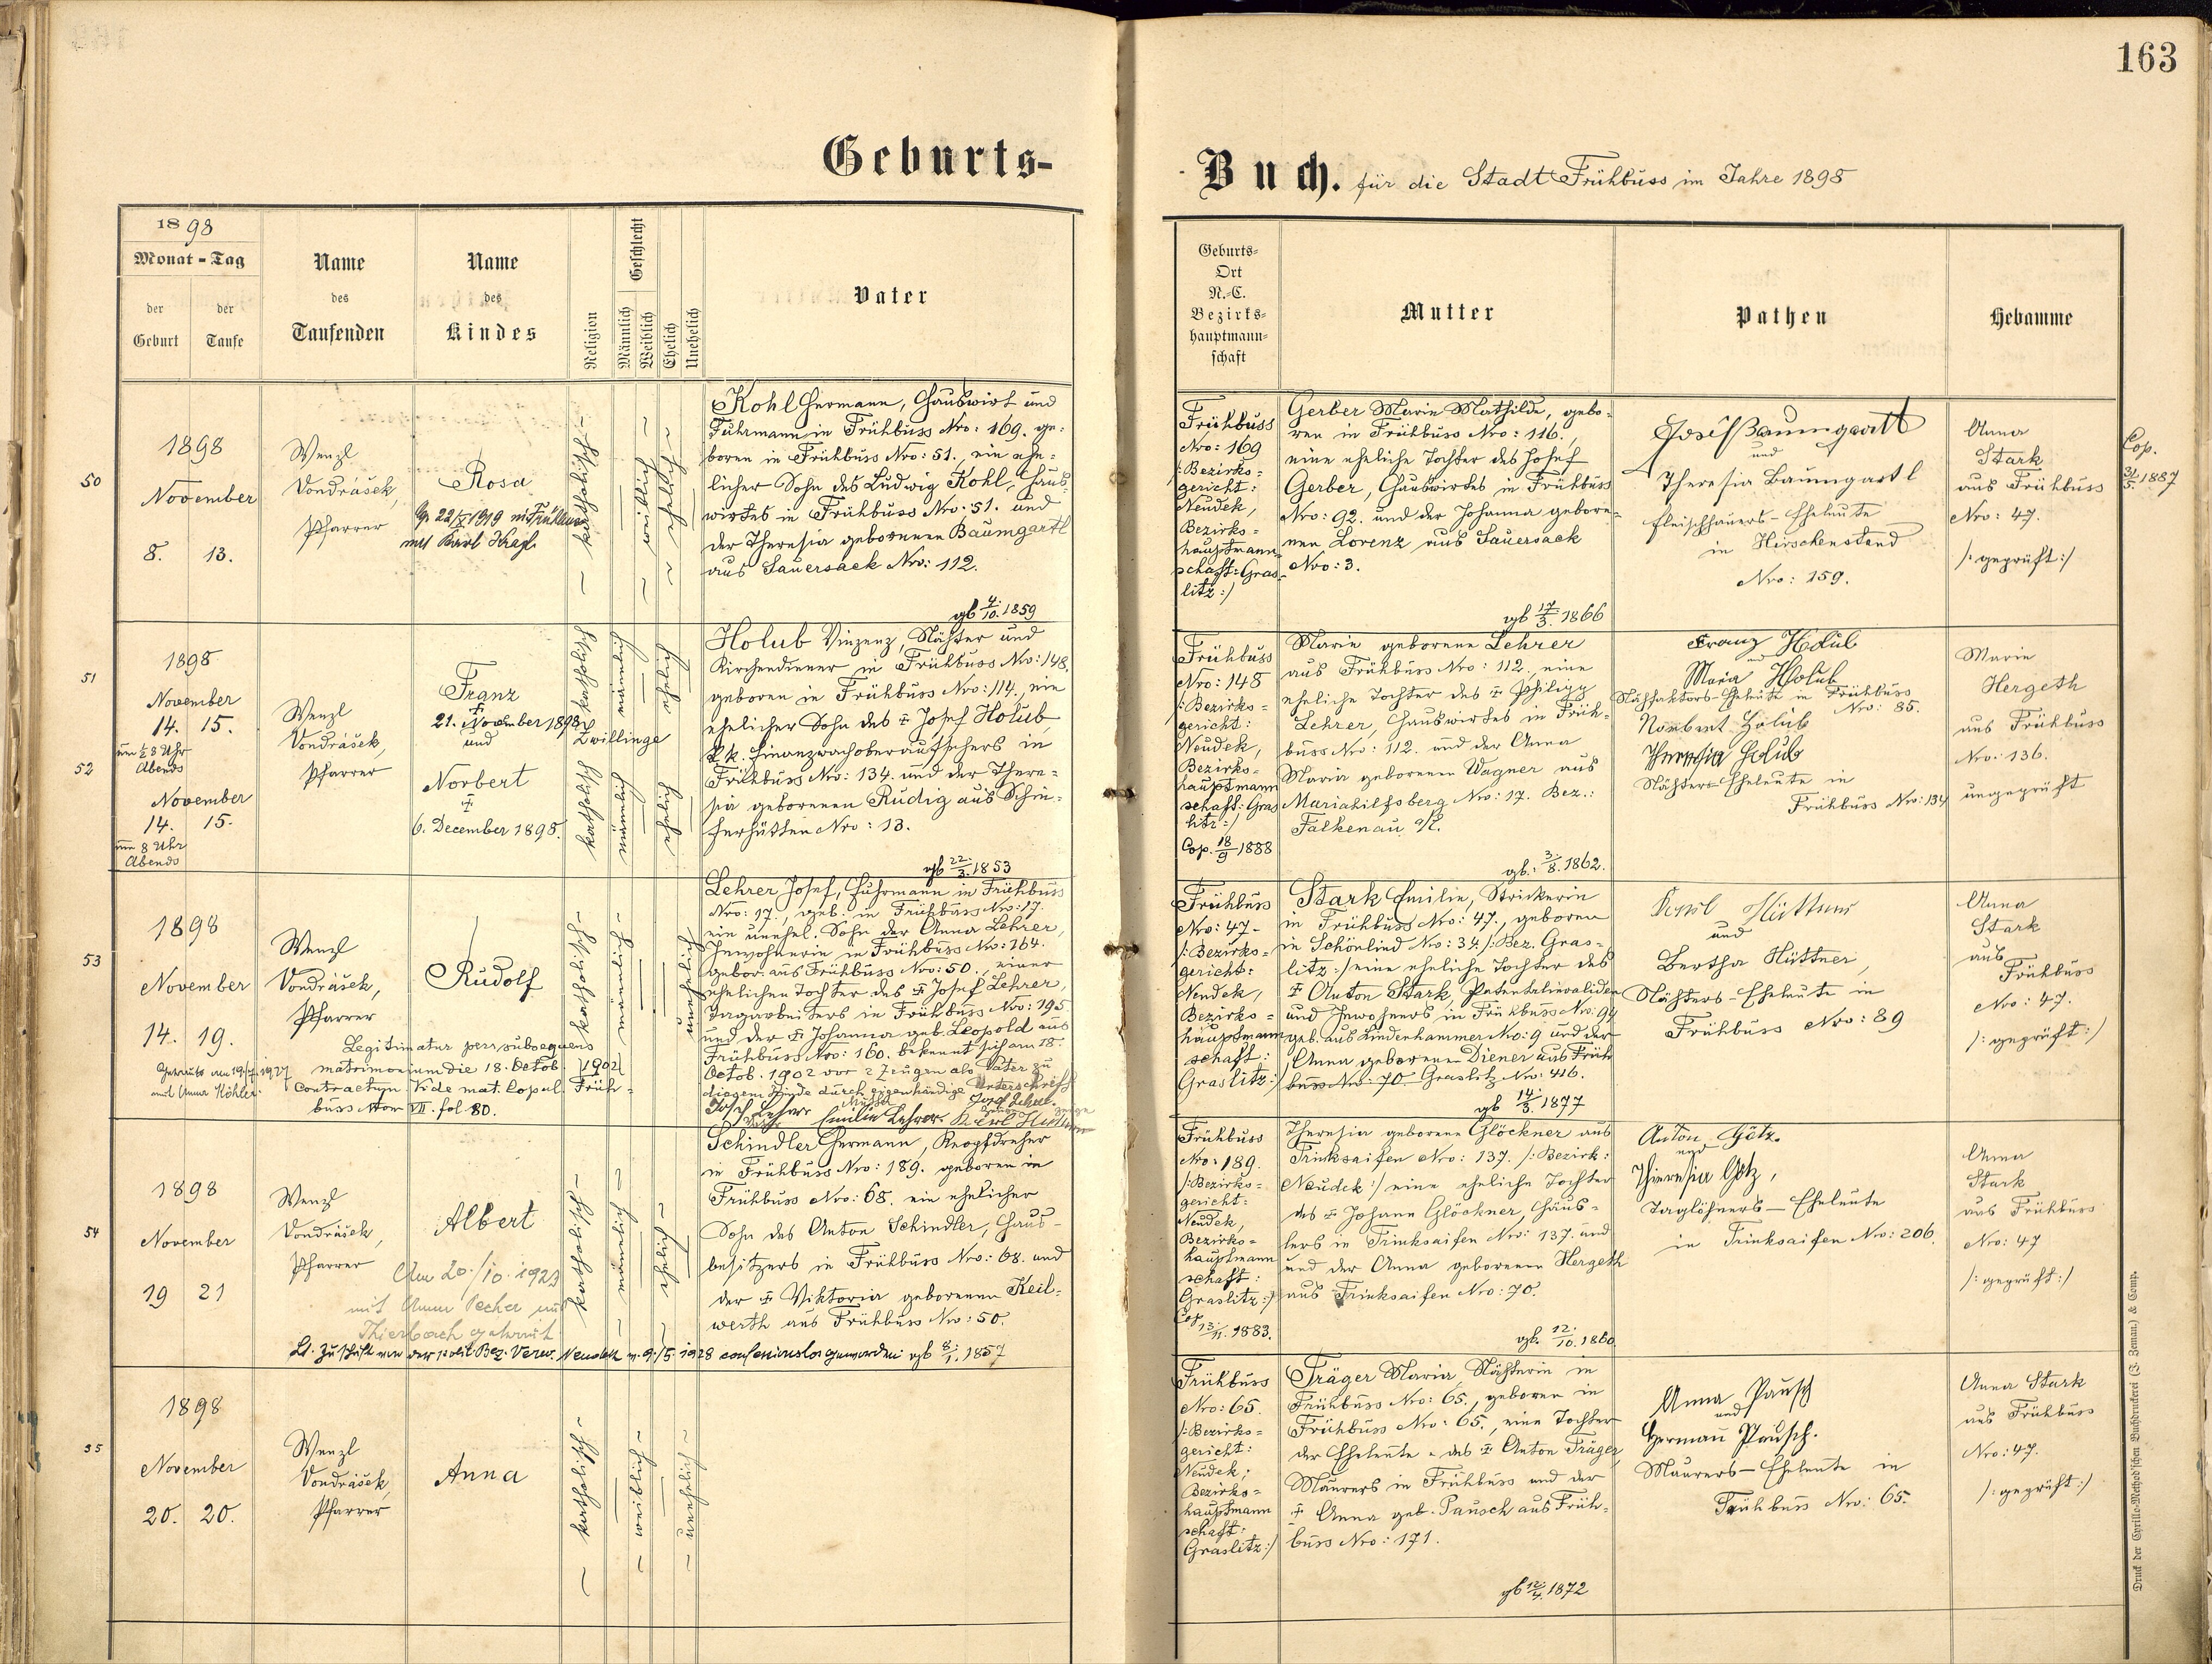 163
Geburts-
Buch. für die Stadt Frühbuss im Jahre 1898
1898
Monat - Tag
der Geburt
der Taufe
Name des Taufenden
Name des Kindes
Religion
Geschlecht
Männlich
Weiblich
Ehelich
Unehelich
Vater
Geburts-
Ort
N.-C.
Bezirks-
hauptmann-
schaft
Mutter
Pathen
Hebamme
50
1898
November
8. 13.
Wenzl
Vondrášek,
Pfarrer
Rosa
mit Karl
– katholisch –
– weiblich –
– ehelich –
Kohl Hermann, Hauswirt und
Fuhrmann in Frühbuss Nro: 169. ge-
boren in Frühbuss Nro: 51., ein ehe-
licher Sohn des Ludwig Kohl, Haus-
wirtes in Frühbuss Nro: 51. und
der Theresia geborenen Baumgartl
aus Sauersack Nro: 112.
gb 4./10. 1859
Frühbuss
Nro: 169
/: Bezirks-
gericht:
Neudek,
Bezirks-
hauptmann-
schaft: Gras-
litz :/
Gerber Marie Mathilde, gebo-
ren in Frühbuss Nro: 116.,
eine eheliche Tochter des Josef
Gerber, Hauswirtes in Frühbuss
Nro: 92. und der Johanna gebore-
nen Lorenz aus Sauersack
Nro: 3.
gb 17./3. 1866
Josef Baumgartl
und
Theresia Baumgartl
Fleischhauers-Eheleute
in Hirschenstand
Nro: 159.
Anna
Stark
aus Frühbuss
Nro: 47.
/: geprüft :/
Cop.
31/5. 1887
51
1898
November
14. 15.
um ½ 8 Uhr
Abends
52
November
14. 15.
um 8 Uhr
Abends
Wenzl
Vondrášek,
Pfarrer
Franz
†
21. November 1898
und
Norbert
†
6. December 1898.
Zwillinge
katholisch
männlich
ehelich
katholisch
männlich
ehelich
Holub Vinzenz, Nähter und
Kirchendiener in Frühbuss Nro: 148.
geboren in Frühbuss Nro: 114., ein
ehelicher Sohn des † Josef Holub,
k. k. Finanzwachoberaufsehers in
Frühbuss Nro: 134. und der There-
sia geborenen Rudig aus Schie-
ferhütten Nro: 13.
gb 22./3. 1853
Frühbuss
Nro: 148
/: Bezirks-
gericht:
Neudek,
Bezirks-
hauptmann
schaft: Gras
litz :/
Cop. 18/9 1888
Marie geborene Lehrer
aus Frühbuss Nro: 112, eine
eheliche Tochter des † Philipp
Lehrer, Hauswirtes in Früh-
buss Nro: 112. und der Anna
Maria geborenen Wagner aus
Mariahilfsberg Nro: 17. Bez.:
Falkenau a/E.
gb.: 3./8. 1862.
Franz Holub
und
Maria Holub
Nähfaktors-Eheleute in Frühbuss
Nro: 85.
Norbert Holub
Theresia Holub
Nähters-Eheleute in
Frühbuss Nro: 134
Marie
Hergeth
aus Frühbuss
Nro: 136.
ungeprüft
53
1898
November
14. 19.
Wenzl
Vondrášek,
Pfarrer
Rudolf
– katholisch –
– männlich –
unehelich
Legitimatur per subsequens
matrimonium die 18. Octob. 1902
contractum Vide mat. Copul. Früh-
buss Tom VII. fol. 80.
mit Anna Köhler
Lehrer Josef, Fuhrmann in Frühbuss
Nro: 17., geb. in Frühbuss Nro: 17.
ein unehel. Sohn der Anna Lehrer,
Inwohnerin in Frühbuss Nro: 164.
gebor. aus Frühbuss Nro: 50., einer
ehelichen Tochter des † Josef Lehrer,
Tagarbeiters in Frühbuss Nro: 195.
und der † Johanna geb. Leopold aus
Frühbuss Nro: 160. bekennt sich am 18.
Octob. 1902 vor 2 Zeugen als Vater zu
diesem Kinde durch eigenhändige Unterschrift
Josef Lehrer
Vater
Mutter
Emilie Lehrer
Frühbuss
Nro: 47-
/: Bezirks-
gericht:
Neudek,
Bezirks-
hauptmann
schaft:
Graslitz :/
Stark Emilie, Strickerin
in Frühbuss Nro: 47., geboren
in Schönlind Nro: 34 /: Bez. Gras-
litz :/ eine eheliche Tochter des
† Anton Stark, Patentalinvaliden
und Inwohners in Frühbuss Nro: 94
geb. aus Lindenhammer Nro: 9 und der
Anna geborenen Diener aus Früh
buss Nro: 70. Graslitz Nro: 416.
gb 14./3. 1877
Karl Hüttner
und
Bertha Hüttner,
Nähters-Eheleute in
Frühbuss Nro: 89
Anna
Stark
aus
Frühbuss
Nro: 47.
/: geprüft :/
54
1898
November
19 21
Wenzl
Vondrášek,
Pfarrer
Albert
Am 20./10. 1923
mit Anna Pecher aus
Thierbach getraut
– katholisch –
– männlich –
– ehelich –
Schindler Hermann, Knopfdreher
in Frühbuss Nro: 189. geboren in
Frühbuss Nro: 68. ein ehelicher
Sohn des Anton Schindler, Haus-
besitzers in Frühbuss Nro: 68. und
der † Viktoria geborenen Keil-
werth aus Frühbuss Nro: 50.
Lt. Zuschrift von der polit. Bez. Verw. Neudek v. 9./5. 1928 confessionslos geworden gb 8./1. 1857
Frühbuss
Nro: 189.
/: Bezirks-
gericht:
Neudek,
Bezirks-
hauptmann
schaft:
Graslitz :/
Cop. 13./11. 1883.
Theresia geborene Glöckner aus
Trinksaifen Nro: 137. /: Bezirk:
Neudek :/ eine eheliche Tochter
des † Johann Glöckner, Häus-
lers in Trinksaifen Nro: 137. und
und der Anna geborenen Hergeth
aus Trinksaifen Nro: 70.
gb. 12./10. 1860.
Anton Götz.
und
Theresia Götz,
Taglöhners-Eheleute
in Trinksaifen Nro: 206.
Anna
Stark
aus Frühbuss
Nro: 47
/: geprüft :/
35
1898
November
20. 20.
Wenzl
Vondrášek,
Pfarrer
Anna
– katholisch –
– weiblich –
– unehelich –
Frühbuss
Nro: 65.
/: Bezirks-
gericht:
Neudek;
Bezirks-
hauptmann
schaft:
Graslitz :/
Träger Maria, Nähterin in
Frühbuss Nro: 65., geboren in
Frühbuss Nro: 65., eine Tochter
der Eheleute - des † Anton Träger,
Maurers in Frühbuss und der
† Anna geb. Pausch aus Früh-
buss Nro: 171.
gb 12./4. 1872
Anna Pausch
und
Hermann Pausch.
Maurers-Eheleute in
Frühbuss Nro: 65.
Anna Stark
aus Frühbuss
Nro: 47.
/: geprüft :/
Druck der Cyrillo-Method'schen Buchdruckerei (J. Zeman.) & Comp.